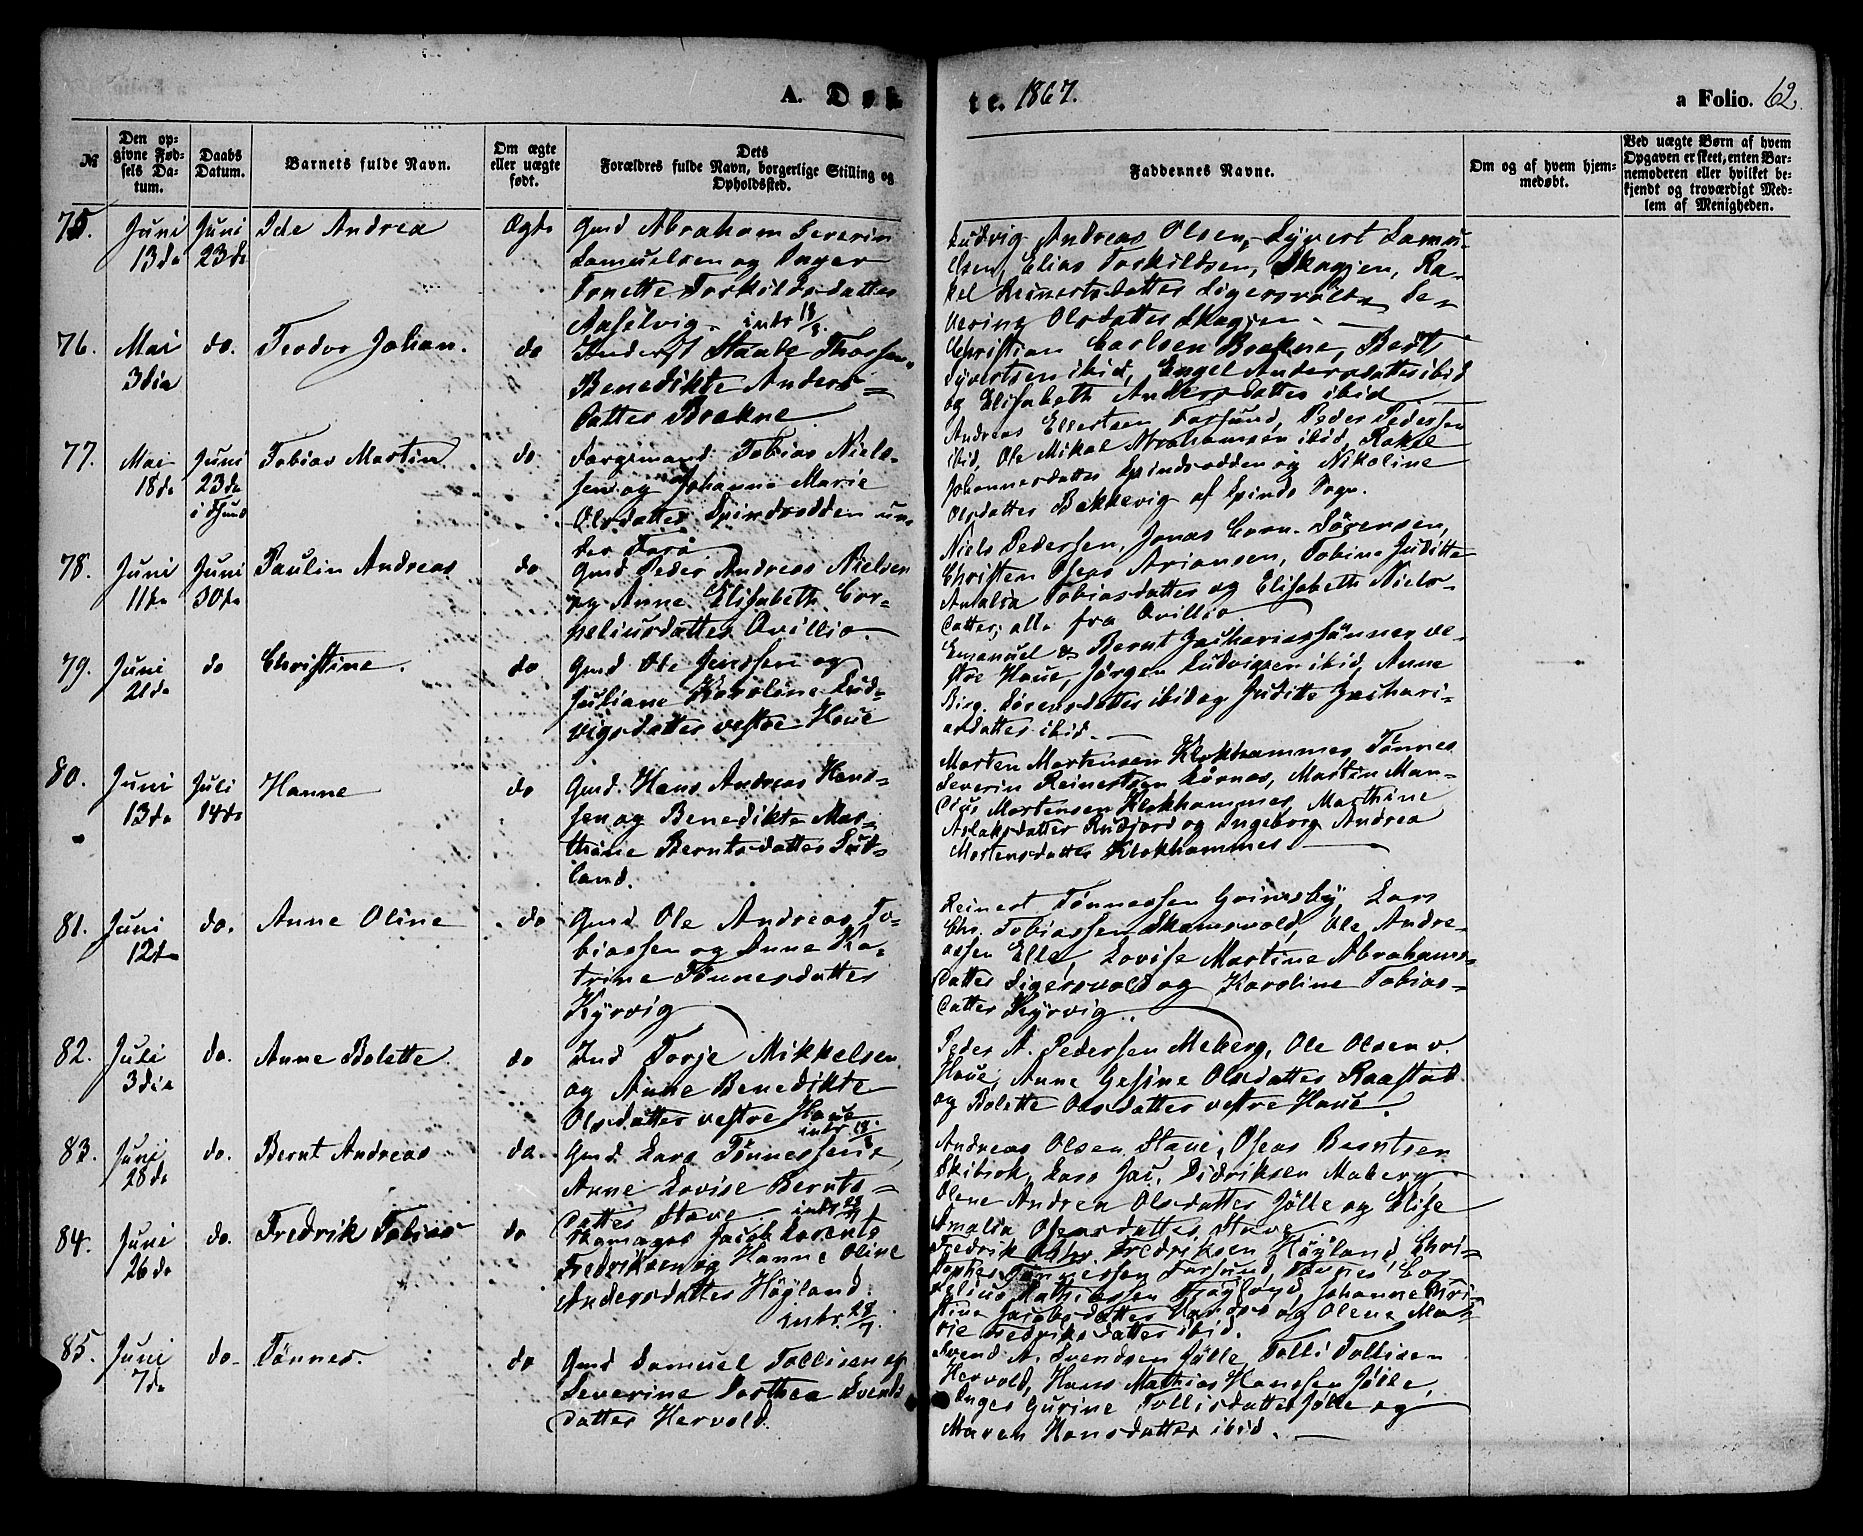 A. Døbte. 1867.
a Folio. 62.
№
Den opgivne Fødsels Datum.
Daabs Datum.
Barnets fulde Navn.
Om ægte eller uægte født.
Dets Forældres fulde Navn, borgerlige Stilling og Opholdssted.
Faddernes Navne.
Om og af hvem hjemmedøbt.
Ved uægte Børn af hvem Opgaven er skeet, enten Barnemoderen eller hvilket bekjendt og troværdigt Medlem af Menigheden.
75. Juni 13de
Juni 23de
Ide Andrea
Ægte
Gmd Abraham Severin
Samuelsen og Inger
Tonette Torkildsdatter
intr 18/8
Ludvig Andreas Olsen, Syvert Samu-
elsen, Elias Torkildsen, Skagjen, Ra-
kel Reinertsdatter Sigersvold, Se-
verine Olsdatter Skagjen
76. Mai 3die
do.
Teodor Johan.
do
Staale
Benedikte Anders-
datter Brekne
Christian Carlsen Brekne, Bedt
Syvertsen ibid, Engel Andersdatter ibid
og Elisabeth Andersdatter ibid
77. Mai 18de
Juni 23de
Tobias Martin
do
Tobias Niels-
sen og Johanne Marie
Olsdatter Spindsodden un-
der Farø
Andreas Ellertsen Farsund, Peder Pedersen
ibid, Ole Mikal Abrahamsen ibid, Rakel
Johannesdatter Spindsodden og Nikoline
Olsdatter Bekkevig af Spinds Sogn.
78. Juni 11te
Juni 30te
Paulin Andreas
do
Gmd Peder Andreas Nielsen
og Anne Elisabeth Cor-
neliusdatter Ovillio.
Niels Pedersen, Jonas Corn. Sørensen,
Christen Oseas Ariansen, Tobine Juditte
Amalia Tobiasdatter og Elisabeth Niels-
datter, alle fra Ovillio
79. Juni 21de
do
Christine.
do
Gmd. Ole Jenssen og
Juliane Karoline Lud-
vigsdatter vestre Haue
Emanuel & Bernt Zachariassønner ve-
stre Haue, Jørgen Ludvigsen ibid, Anne
Birg. Sørensdatter ibid og Juditte Zachari-
asdatter ibid.
80. Juni 13de
Juli 14de
Hanne
do
Gmd. Hans Andreas Hans-
sen og Benedikte Mar-
thine Berntsdatter
land.
Morten Mortensen Klokhammer, Tønnes
Severin Reinertsen Lørnes, Martin Man-
dius Mortensen Klokhammer, Marthine
Aslaksdatter Rudjord og Ingeborg Andrea
Mortensdatter Klokhammer
81. Juni 12te
do.
Anne Oline
do
Gmd Ole Andreas To-
biassen og Anne Ka-
trine Tønnesdatter
Kyrvig
Reinert Tønnessen Grimsby, Lars
Chr. Tobiassen Skamsvold, Ole Andre-
assen Elle, Lovise Martine Abrahams-
datter Sigersvold og Karoline Tobias-
datter Kyrvig.
82. Juli 3die
do.
Anne Bolette
do
Ind Torje Mikkelsen
og Anne Benedikte
Olsdatter vestre Haue
intr 18/8
Peder A. Pedersen Meberg, Ole Olsen v.
Haue, Anne Gesine Olsdatter Raastad
og Bolette Olsdatter vestre Haue.
83. Juni 28de
do.
Bernt Andreas
do.
Gmd Lars Tønnessen &
Anne Lovise Bernts-
datter Stave
Andreas Olsen Stave, Oseas Berntsen
Skibrok, Lars Jac. Didriksen Maberg,
Olene Andrea Olsdatter Jølle og Elise
Amalia Oseasdatter Stave
84. Juni 26de
do.
Fredrik Tobias
do
Skomager Jacob Lorents
Fredriksen og Hanne Oline
Andersdatter Høyland.
intr. 28/7.
Fredrik Fredriksen Høyland, Chri-
stopher Tønnessen Farsund, Tønnes Cor-
nelius Mathiassen Johanne Kri-
stine Jacobsdatter og Olene Mar-
rie Fredriksdatter ibid.
85. Juni 7de
do.
Tønnes.
do
Gmd Samuel Tollisen og
Severine Dorthea Svends-
datter Hervold.
Svend A. Svendsen Jølle, Tolli Tollisen
Hervold, Hans Mathias Hanssen Jølle,
Inger Gurine Tollisdatter Jølle og
Maren Hansdatter ibid.